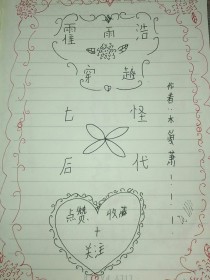 霍雨浩
穿越
七怪
后代
作者:水蔓萧!!!
点赞 收藏
+
关注